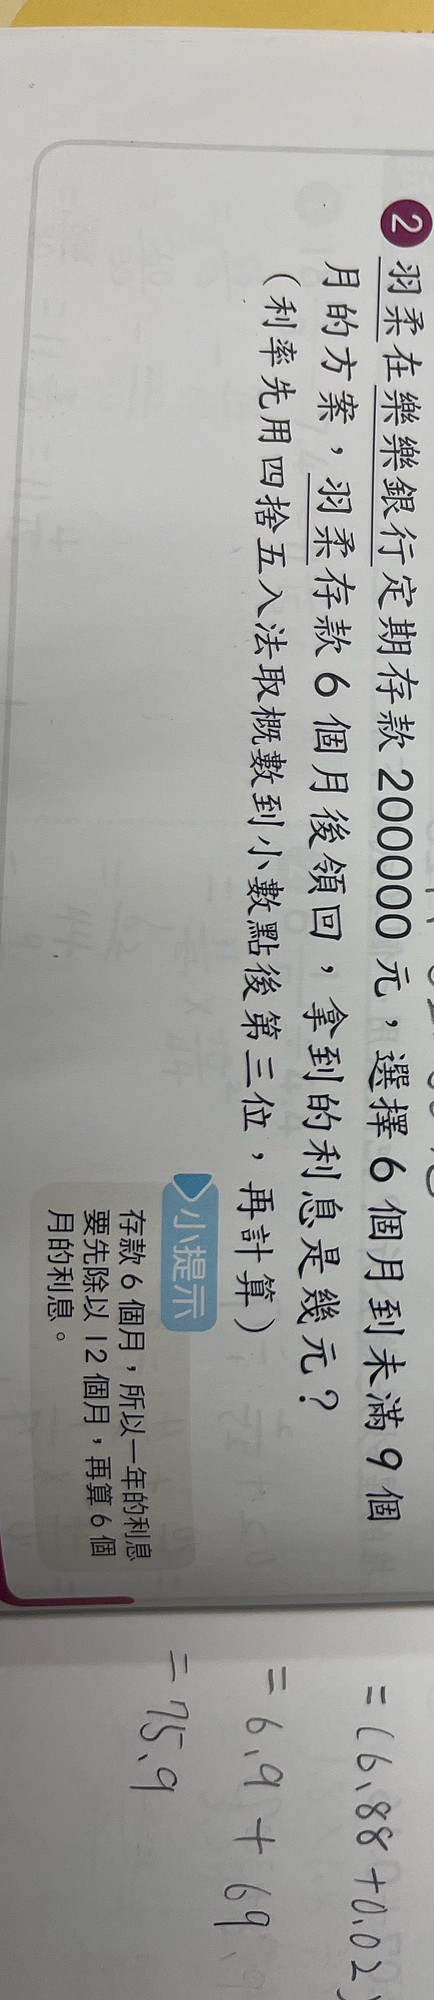 2 羽柔在樂樂銀行定期存款200000元，選擇6個月到未滿9個
月的方案，羽柔存款6個月後領回，拿到的利息是幾元？
（利率先用四捨五入法取概數到小數點後第三位，再計算）
小提示
存款6個月，所以一年的利息
要先除以12個月，再算6個
月的利息。
=(6.88+0.02)
=6.9+69
=75.9